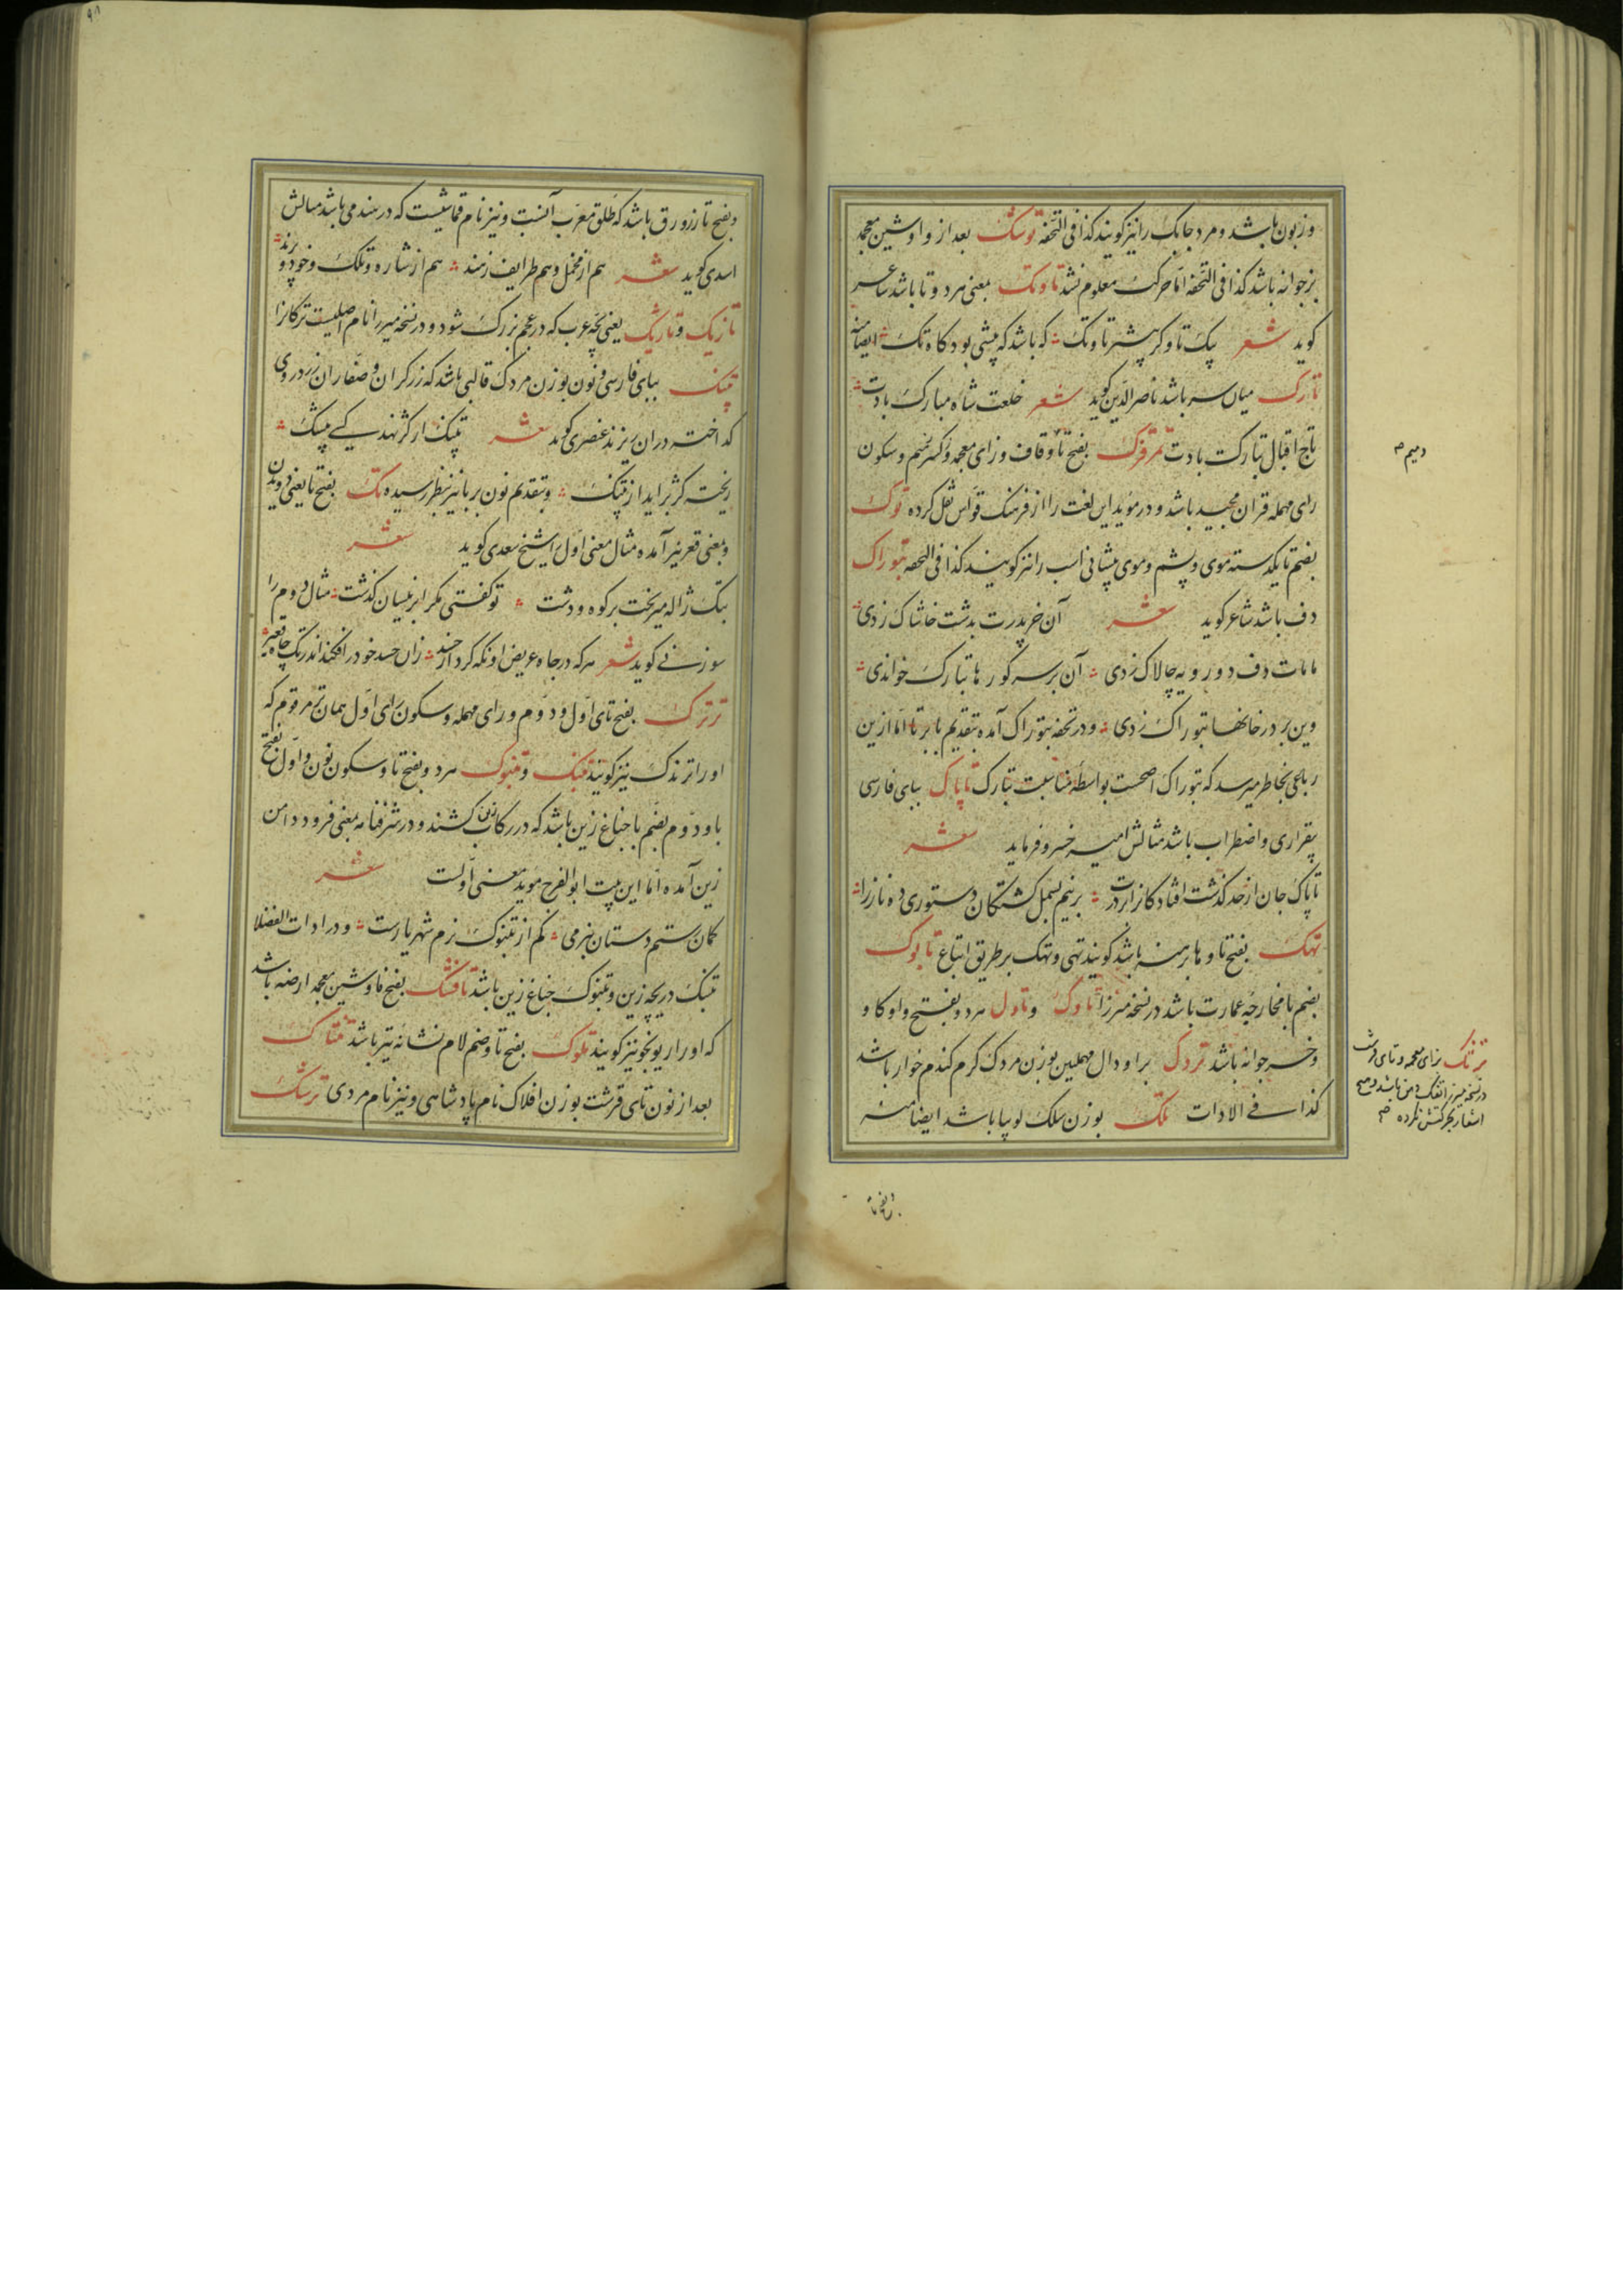 و زبون باشد و مرد جابک را نیز کویند کذا فی التحفه توشک بعد از واو شین معجمه
بز جوانه باشد کذا فی التحفه اما حرکت معلوم نشد تاوتک بمعنی مرد و تا باشد شاعر
کوید شعر یک تا و کر بیشتر تا وتک که باشد که پیشی بود کاه تک ایضا منه
تارک میان سر باشد ناصر الدین کوید شعر خلعت شاه مبارک بادت
تاج اقبال تبارکت بادت بفتح تا و قاف و زای معجمه و کسر و سکون
رای مهمله قران مجید باشد و در مؤید این لغت را از فرهنک قواس نقل کرده توک
بضم تا یکدسته موی و پشم و موی پیشانی اسب را نیز کویند کذا فی التحفه تبوراک
دف باشد شاعر کوید شعر آن خر پدرت بدشت خاشاک زدی
مامات دف دورویه چالاک زدی آن بر سر کورها تبارک خواندی
وین بر در خانها تبوراک زدی و در تحفه بتوراک آمده بتقدیم با بر تا اما ازین
رباعی بخاطر میرسد که تبوراک اصحست بواسطه مناسبت تبارک تاپاک ببای فارسی
بیقراری و اضطراب باشد مثالش امیر خسرو فرماید شعر
تاپاک جان از حد کذشت افتادکانرا بر درت بر نیم بسمل کشتکان دستوری ده نازرا
تهک بفتح تا و ها برهنه باشد کویند تهی و تهک بر طریق اتباع تابوک
بضم با مخارجه عمارت باشد در نسخه میرزا تاوک و تاول مرد و بفتح واو کا و
و خر جوانه باشد تردک برا و دال مهملین بوزن مردک کرم کندم خوار باشد
کذا فی الادات تلک بوزن سلک لوبیا باشد ایضا منه
و میم صح
تزتک بزای معجمه و تای قرشت
در نسخه میرزا تفک دهن باشد و هیچ
اشعار بحرکتش نکرده صح
و بفتح تا
و بفتح تا زرورق باشد که طلق معرب آنست و نیز نام قماشیست که در هند می باشد مثالش
اسدی کوید شعر هم از مخمل و هم طرایف زهند هم از شاره و تلک و خود و پرند
تازیک و تاژیک یعنی بچه عرب که در عجم بزرک شود و در نسخه میرزا نام اصلیت ترکانرا
تپنک ببای فارسی و نون بوزن مردک قالبی باشد که زرکران و صفاران زر و روی
کداخته در آن ریزند عنصری کوید شعر تپنک ار کژ نهند کسی پیشک
ریخته کژ برآید از تپنک و بتقدیم نون بر با نیز بنظر رسیده تک بفتح تا یعنی دویدن
و بمعنی قعر نیز آمده مثال معنی اول را شیخ سعدی کوید شعر
بتک ژاله میریخت بر کوه و دشت تو کفتی مکر ابر نیسان کذشت مثال دوم را
سوزنی کوید شعر هرکه در جاه عریض او نکه کرد از حسد زان حسد خود را فکند اندر تک چاه قعیر
تربرک بفتح تای اول و دوم و رای مهمله و سکون رای اول همان تز مرقوم که
او را ترندک نیز کویند تبنک و تبنوک مرد و بفتح تا و سکون نون و اول بفتح
با و دوم بضم با جناغ زین باشد که در رکاب زین کشند و در شرفنامه بمعنی فرود دامن
زین آمده اما این بیت ابو الفرج موید معنی اولست شعر
کمان رستم دستان بنرمی کم از تبنوک نرم شهریارست و در ادات الفضلا
تبنک دریچه زین و تبنوک جناغ زین باشد تافشک بفتح فا و شین معجمه ارضه باشد
که او را ریونجو نیز کویند تلوک بفتح تا و ضم لام نشانه تیر باشد تنتاک
بعد از نون تای قرشت بوزن افلاک نام پادشاهی و نیز نام مردی ترشک